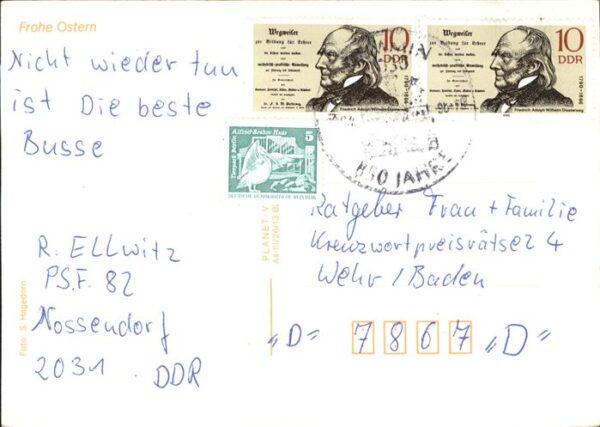 Frohe Ostern
Nicht wieder tun
ist Die beste
Busse
R. Ellwitz
PS.F. 82
Nossendorf
2031 DDR
Foto: S. Hagedorn
PLANET-V
A4-III/26/13
Wegweiser
zur Bildung für Lehrer
10
DDR
Friedrich Adolph Wilhelm Diesterweg
1790-1866
Wegweiser
zur Bildung für Lehrer
10
DDR
Friedrich Adolph Wilhelm Diesterweg
1790-1866
Tierpark Berlin
Alfred-Brehm-Haus
5
DEUTSCHE DEMOKRATISCHE REPUBLIK
JAHRE
Ratgeber Frau + Familie
Kreuzwortpreisrätsel 4
Wehr / Baden
„D" 7867 „D"